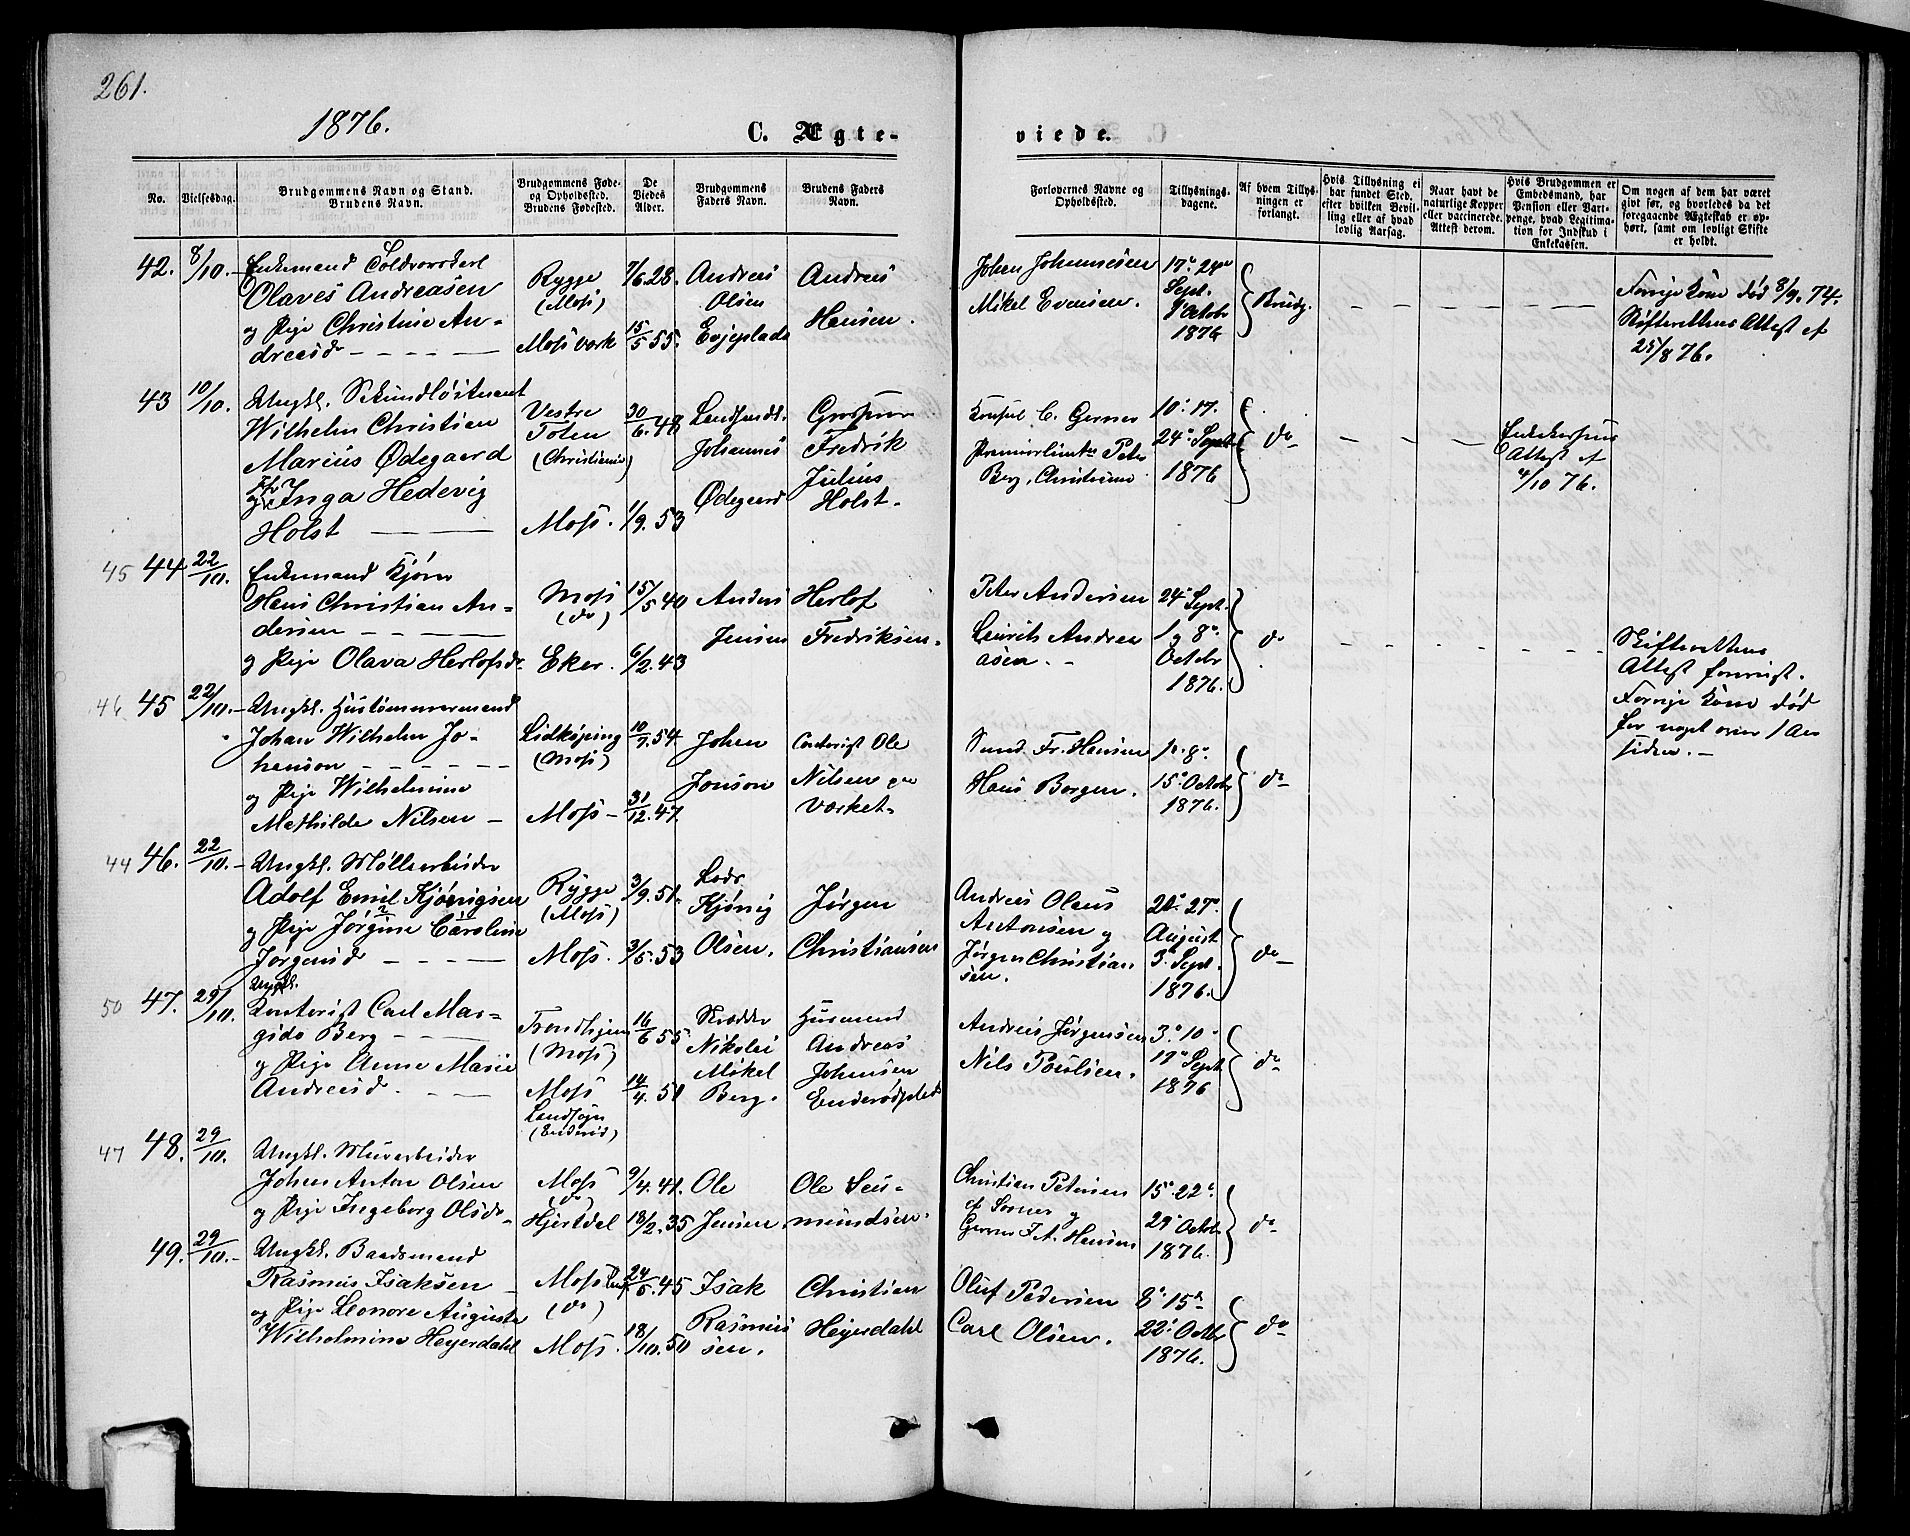 261.
1876.
C. Ægte-
viede.
No.
Vielsesdag.
Brudgommens Navn og Stand.
Brudens Navn.
Brudgommens Føde-
og Opholdssted.
Brudens Fødested.
De
Viedes
Alder.
Brudgommens
Faders Navn.
Brudens Faders
Navn.
Forlovernes Navne og
Opholdssted.
Tillysnings-
dagene.
Af hvem Tillys-
ningen er
forlangt.
Hvis Tillysning ei
har fundet Sted,
efter hvilken Bevil-
ling eller af hvad
lovlig Aarsag.
Naar havt de
naturlige Kopper
eller vaccinerede.
Attest derom.
Hvis Brudgommen er
Embedsmand, har
Pension eller Var-
penge, hvad Legitima-
tion for Indskud i
Enkekassen.
Om nogen af dem har været
givt før, og hvorledes da det
foregaaende Ægteskab er op-
hørt, samt om lovligt Skifte
er holdt.
42. 8/10. Enkemand
Olaves Andreasen
og Pige Christine An-
dreasd
Rygge
(Moss)
Mossværk
7/6. 28.
15/5 55.
Andreas
Olsen
Evjeplads
Andreas
Hansen.
Johan Johannesen
Mikel Evensen.
17de 24de
Sept.
1ste Octobr
1876
Brudg.
Forrige Kone død 8/9. 74.
Skifterettens Attest af
25/8 76.
43 10/10. Ungkl. Sekundløitnant
Wilhelm Christian
Marius Ødegaard
og Inga Hedevig
Holst
Vestre
Toten
(Christiania)
Moss.
30/6. 48
1/9. 53
Landhandl.
Johannes
Ødegaard
Fredrik
Julius
Holst.
C. Gerner
Premierlieutn Peter
Berg, Christiania
10de 17.
24de Sept
1876
do
Enkekassens
Attest af
4/10 76.
45 44 22/10. Enkemand Kjøre
Hans Christian An-
dersen
og Pige Olava Herlofsdr
Moss
(do)
Eker.
15/5 40
6/2. 43
Anders
Jensen
Herlof
Fredriksen.
Peter Andersen
Laurits Andrea
asen.
24de Sept.
1 g 8de
Octobr
1876.
do
Skifterettens
Attest forevist.
Forrige Kone død
for noget over 1 Aar
siden.
46 45 22/10. Ungkl. Hustømmermand
Johan Wilhelm Jo-
hanson
og Pige Wilhelmine
Mathilde Nilsen
Lidkøping
(Moss)
Moss
10/7. 54.
31/12. 47.
Johan
Jonson
Contorist Ole
Nilsen paa
Værket.
Fr. Hansen
Hans Borgen.
1ste 8de
15de Octobr
1876.
do
44 46. 22/10. Ungkl. Møllearbeider
Adolf Emil Kjønigsen
og Pige Jørgine Caroline
Jørgensd
Rygge
(Moss)
Moss.
3/9. 51.
3/5. 53
Lods
Kjønig
Olsen.
Jørgen
Christiansen
Andreas Olaus
Antonsen og
Jørgen Christian
sen.
20de 27de
August
3de Sept.
1876.
do
50 47. 29/10. Ungkl.
Kontorist Carl Mar-
gido Berg
og Pige Anne Marie
Andreasd.
Trondhjem
(Moss)
Moss
Landsogn
(Enderød)
16/6 55.
14/4. 51
Skrædder
Nikolai
Mikel
Berg.
Husmand
Andreas
Johansen
Enderødplads
Andreas Jørgensen
Nils Poulsen.
3de 10de
17de Sept
1876
do
47 48. 29/10. Ungkl. Murarbeider
Johan Anton Olsen
og Pige Ingeborg Olsdr.
Moss
(do)
Hjertdal
9/4. 41.
18/2. 35
Ole
Jensen
Ole Sea-
mundsen.
Christian Petersen
og
F. A. Hansen
15de 22de
29de Octobr
1876.
do
49. 29/10. Ungkl. Baadsmand
Rasmus Isaksen
og Pige Leonore Augusta
Wilhelmine Heyerdahl
Moss
(do)
Moss.
24/5. 45
18/10. 50
Isak
Rasmus
sen.
Christian
Heyerdahl
Oluf Pedersen
Carl Olsen.
8de 15de
22de Octbr
1876.
do